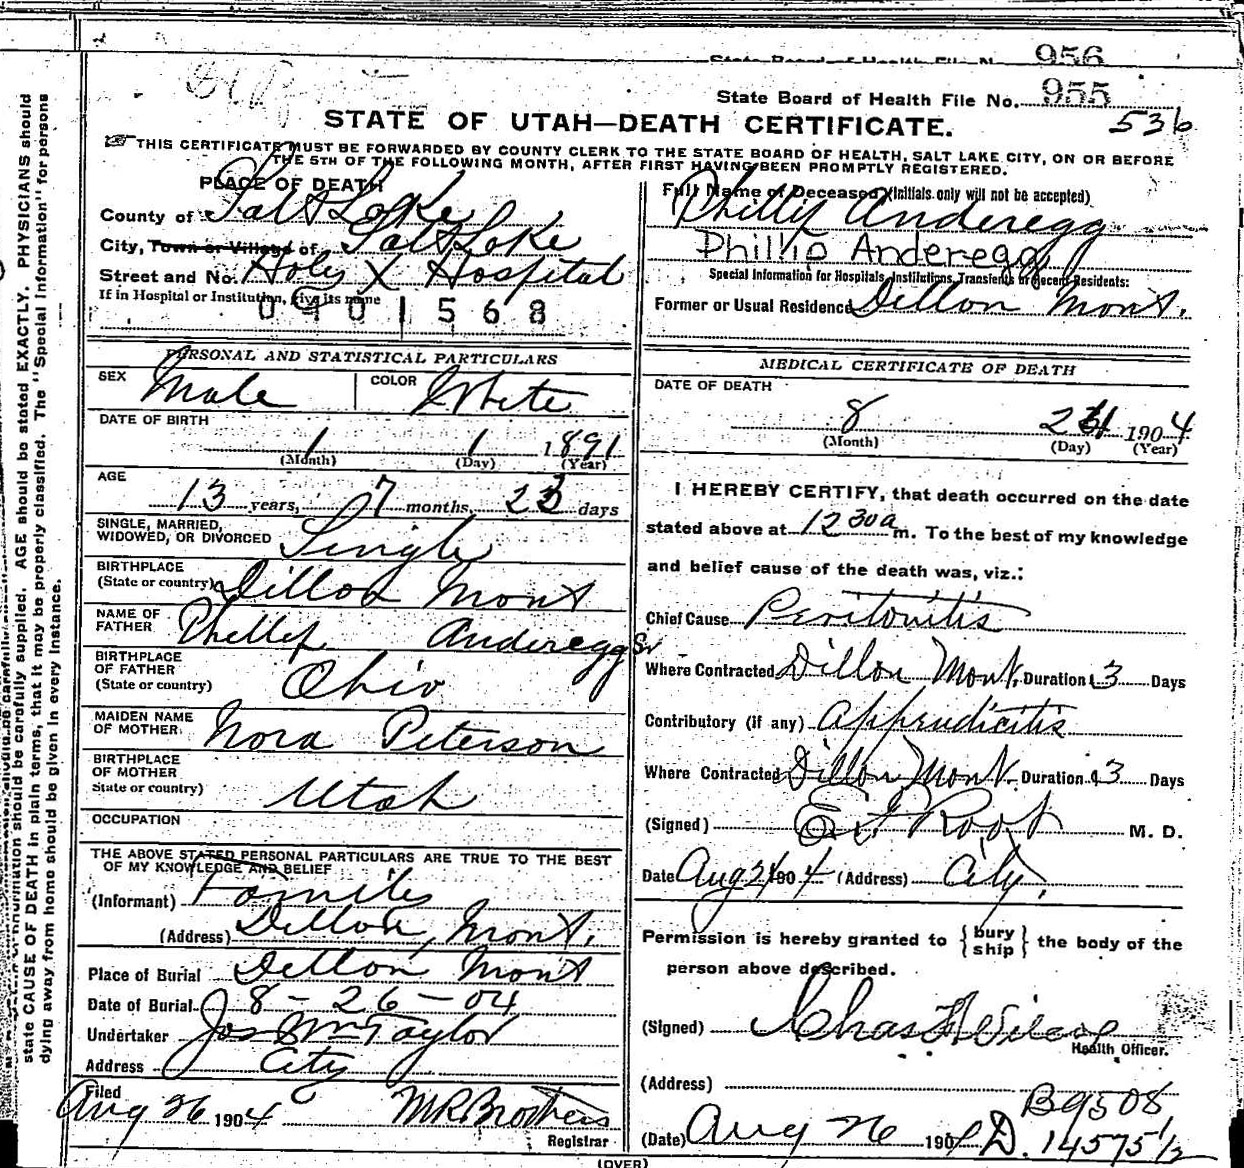 956
State Board of Health File No. 955
536
STATE OF UTAH—DEATH CERTIFICATE.
THIS CERTIFICATE MUST BE FORWARDED BY COUNTY CLERK TO THE STATE BOARD OF HEALTH, SALT LAKE CITY, ON OR BEFORE
THE 5TH OF THE FOLLOWING MONTH, AFTER FIRST HAVING BEEN PROMPTLY REGISTERED.
PLACE OF DEATH
County of Salt Lake
City, Town or Village of Salt Lake
Street and No. Holy X Hospital
If in Hospital or Institution, give its name
0901568
Full Name of Deceased (Initials only will not be accepted)
Phillip Anderegg
Phillip Anderegg
Special Information for Hospitals, Institutions, Transients or Recent Residents:
Former or Usual Residence Dillon Mont.
PERSONAL AND STATISTICAL PARTICULARS
SEX Male COLOR White
DATE OF BIRTH
1 1 1891
(Month) (Day) (Year)
AGE
13 years, 7 months, 23 days
SINGLE, MARRIED,
WIDOWED, OR DIVORCED Single
BIRTHPLACE
(State or country) Dillon Mont
NAME OF
FATHER Phillip Anderegg Sr
BIRTHPLACE
OF FATHER
(State or country) Ohio
MAIDEN NAME
OF MOTHER Nora Peterson
BIRTHPLACE
OF MOTHER
State or country) Utah
OCCUPATION
THE ABOVE STATED PERSONAL PARTICULARS ARE TRUE TO THE BEST
OF MY KNOWLEDGE AND BELIEF
(Informant) Families
(Address) Dillon, Mont.
Place of Burial Dillon Mont
Date of Burial 8-26-04
Undertaker Jos Wm Taylor
Address City
Filed
Aug 26 1904 M R Brothers
Registrar
MEDICAL CERTIFICATE OF DEATH
DATE OF DEATH
8 1904
(Month) (Day) (Year)
I HEREBY CERTIFY, that death occurred on the date
stated above at 12 30 a m. To the best of my knowledge
and belief cause of the death was, viz.:
Chief Cause Peritonitis
Where Contracted Dillon Mont. Duration 3 Days
Contributory (if any) Appendicitis
Where Contracted Dillon Mont. Duration 3 Days
(Signed) E. F. Root M. D.
Date Aug 1904 (Address) City.
Permission is hereby granted to {bury
ship} the body of the
person above described.
(Signed) Chas
Health Officer.
(Address)
B9508
(Date) Aug 26 1904 D. 14575 1/2
(OVER)
state CAUSE OF DEATH in plain terms, that it may be properly classified. The "Special Information" for persons
dying away from home should be given in every instance.
information should be carefully supplied. AGE should be stated EXACTLY. PHYSICIANS should